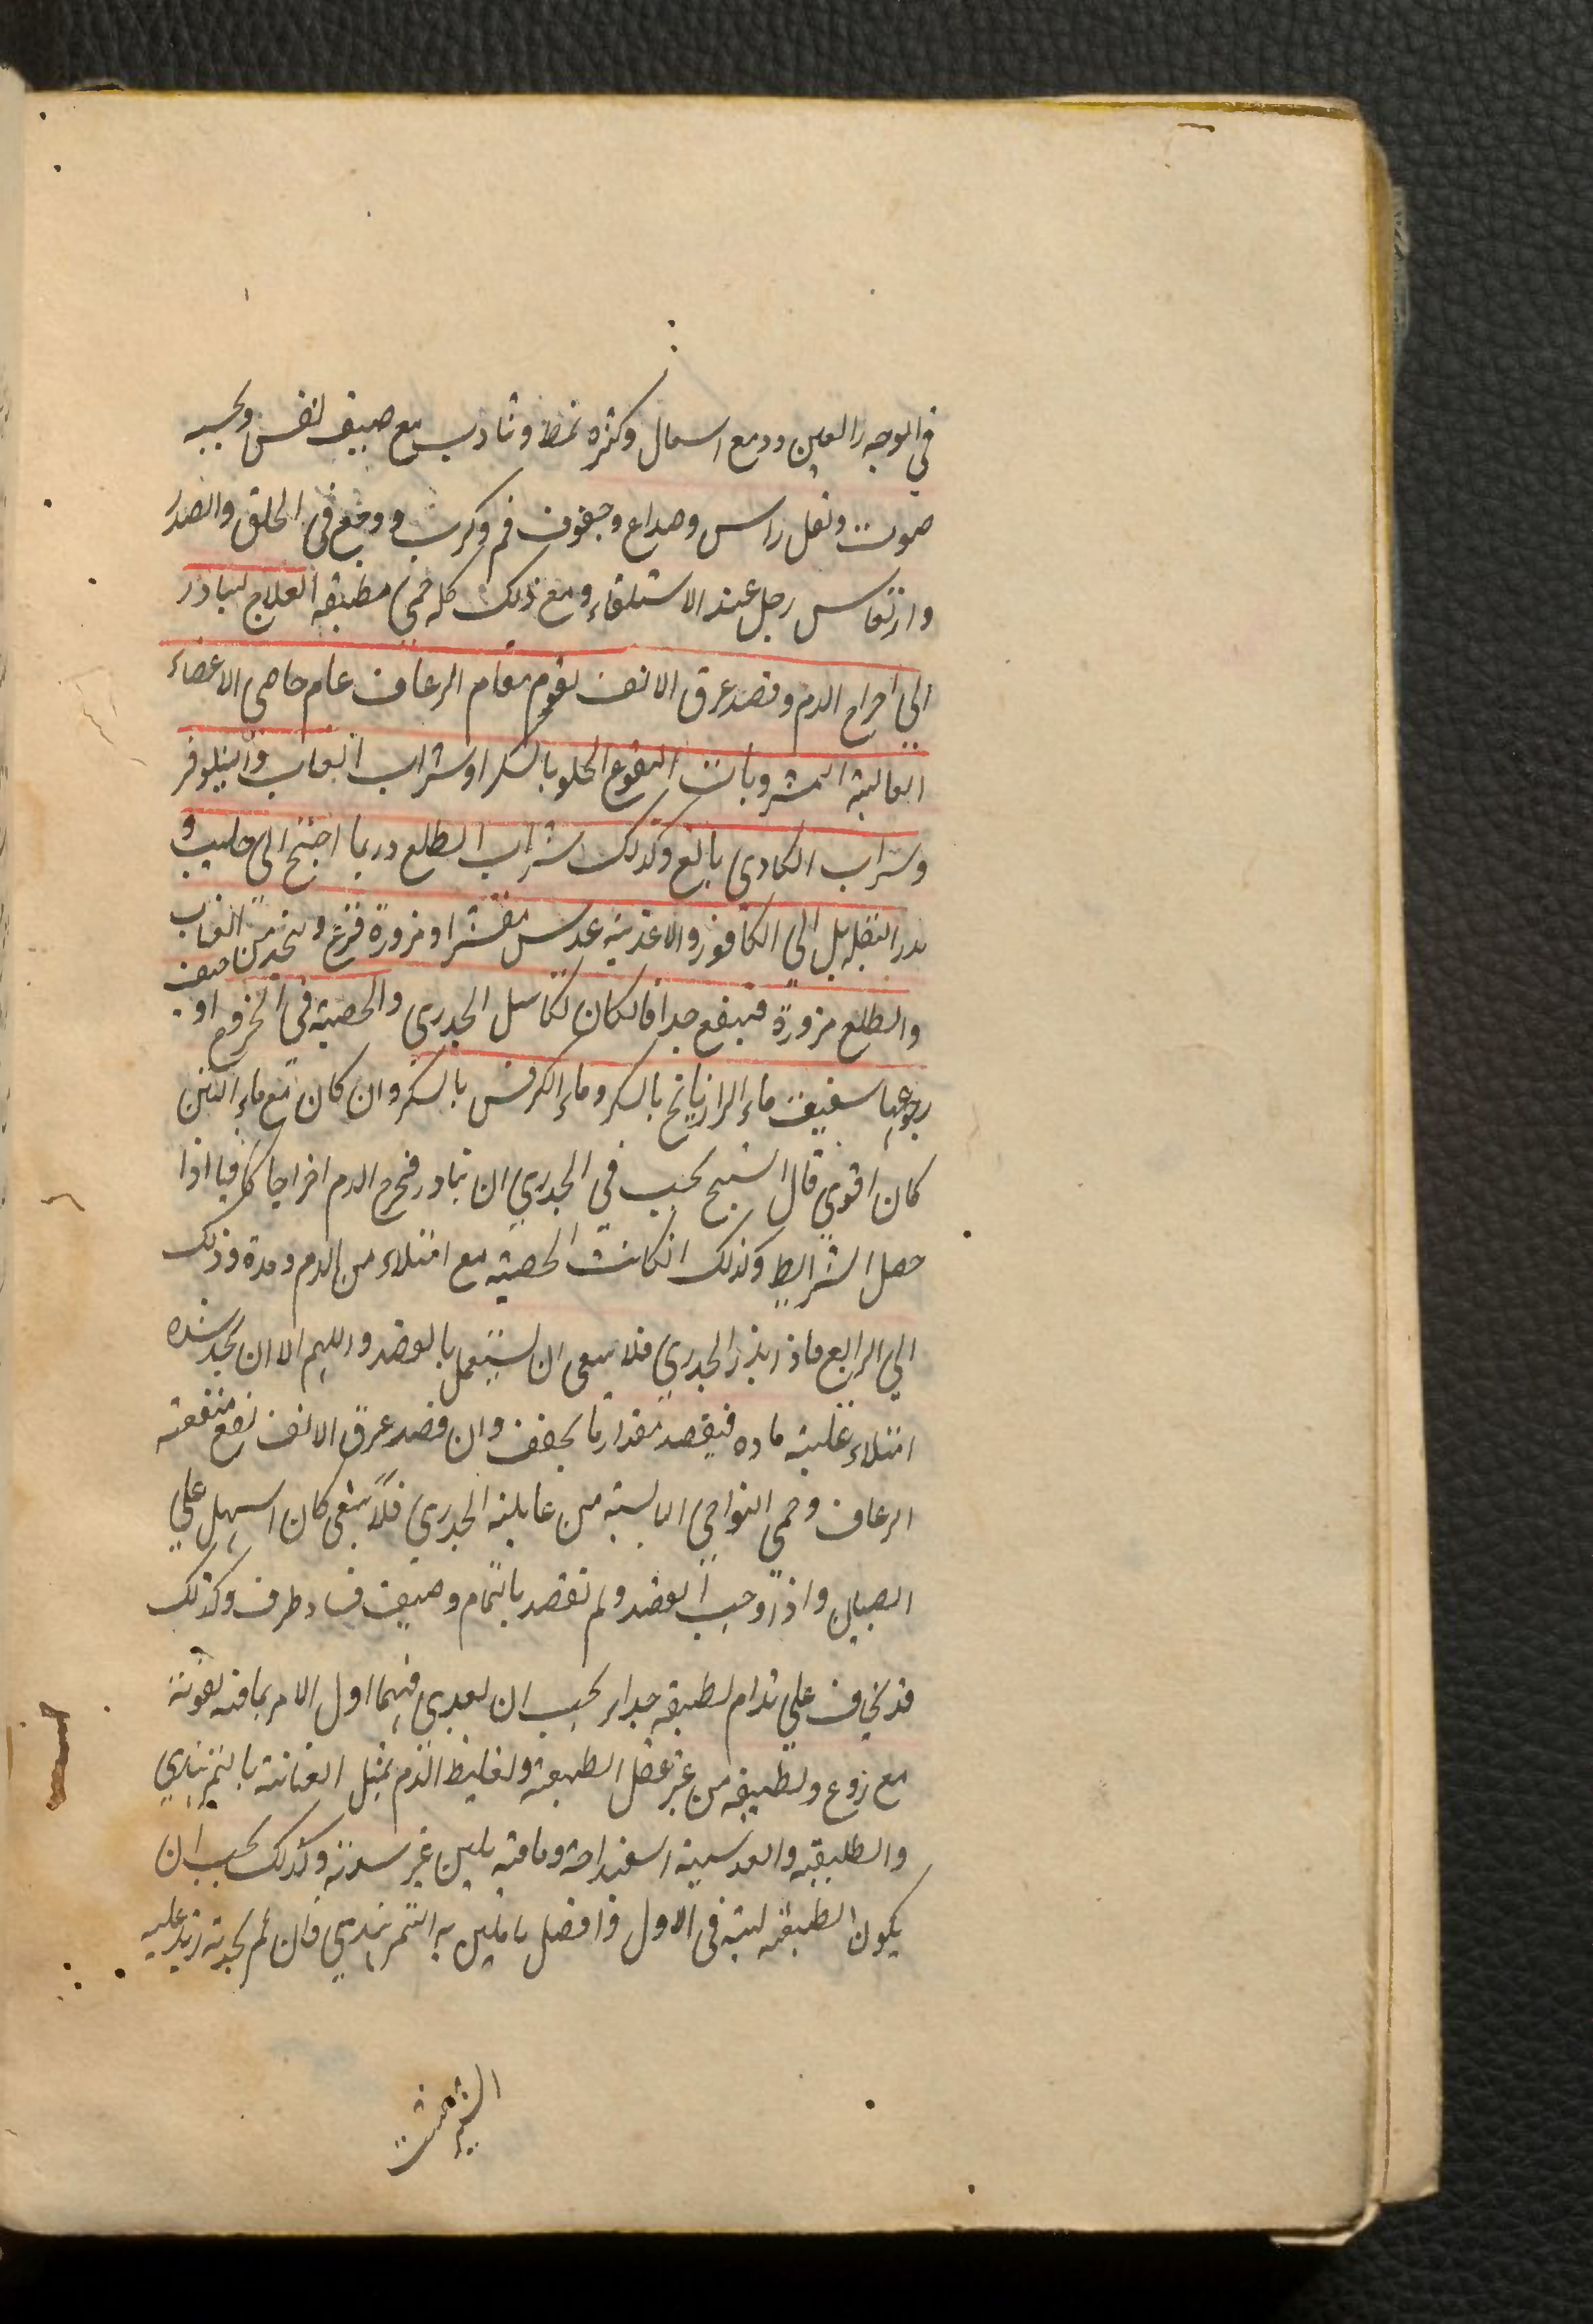 في الوجه والعين ودمع اسهال وكثرة تمط وتثاوب مع ضيق نفس وبحة
صوت وثقل راس وصداع وجفوف فم وكرب ووجع في الحلق والصدر
وارتعاس رجل عند الاستلقاء ومع ذلك كله حمى مطبقة العلاج ليبادر
الي اخراج الدم وفصد عرق الانف يقوم مقام الرعاف عام حامي الاعضاء
العالية المشروبات النقوع الحلو بالسكر او شراب العناب والنيلوفر
وشراب الكادي بالغ وكذلك شراب الطلع وربما احتيج الى حليب
بذر البقلة بل الي الكافور والاغذية عدس مقشر او مزورة قرع ويتخذ من العناب
والطلع مزورة فينفع جدا فان كان تكاسل الجدري والحصبة في الخروج او خيف
رجوعها سقيت ماء الرازيانج بالسكر وماء الكرفس بالسكر وان كان مع ماء التين
كان اقوي قال الشيخ يجب في الجدري ان تبادر فتخرج الدم اخراجا كافيا اذا
حصل الشرايط وكذلك ان كانت الحصبة مع امتلاء من الدم ومدة وذلك
الي الرابع فاذا برز الجدري فلا ينبغي ان يستعمل بالفصد اللهم الا ان يجد شدة
امتلاء غلبة مادة فيفصد مقدار ما يخفف وان فصد عرق الانف نفع منفعة
الرعاف وحمي النواحي العالية من غايلة الجدري فلا ينبغي كان اسهل علي
الصبيان واذا وجب الفصد ولم تفصد بالتمام وخيف فساد طرف وكذلك
قد يخاف علي تدام لطبقه جدا يجب ان يغدي فيهما اول الامر بما فيه تقوية
مع ردع وتطفية من غير عقل الطبيعة وتغليظ الدم بمثل العنابية بالتمر هندي
والطلعية والعدسية اسفيداجة وما فيه تليين غير شديد وكذلك يجب ان
يكون الطبيعة لينة في الاول وافضل ما تلين به التمر هندي فان لم يجد به زيد عليه
الشيرخشت